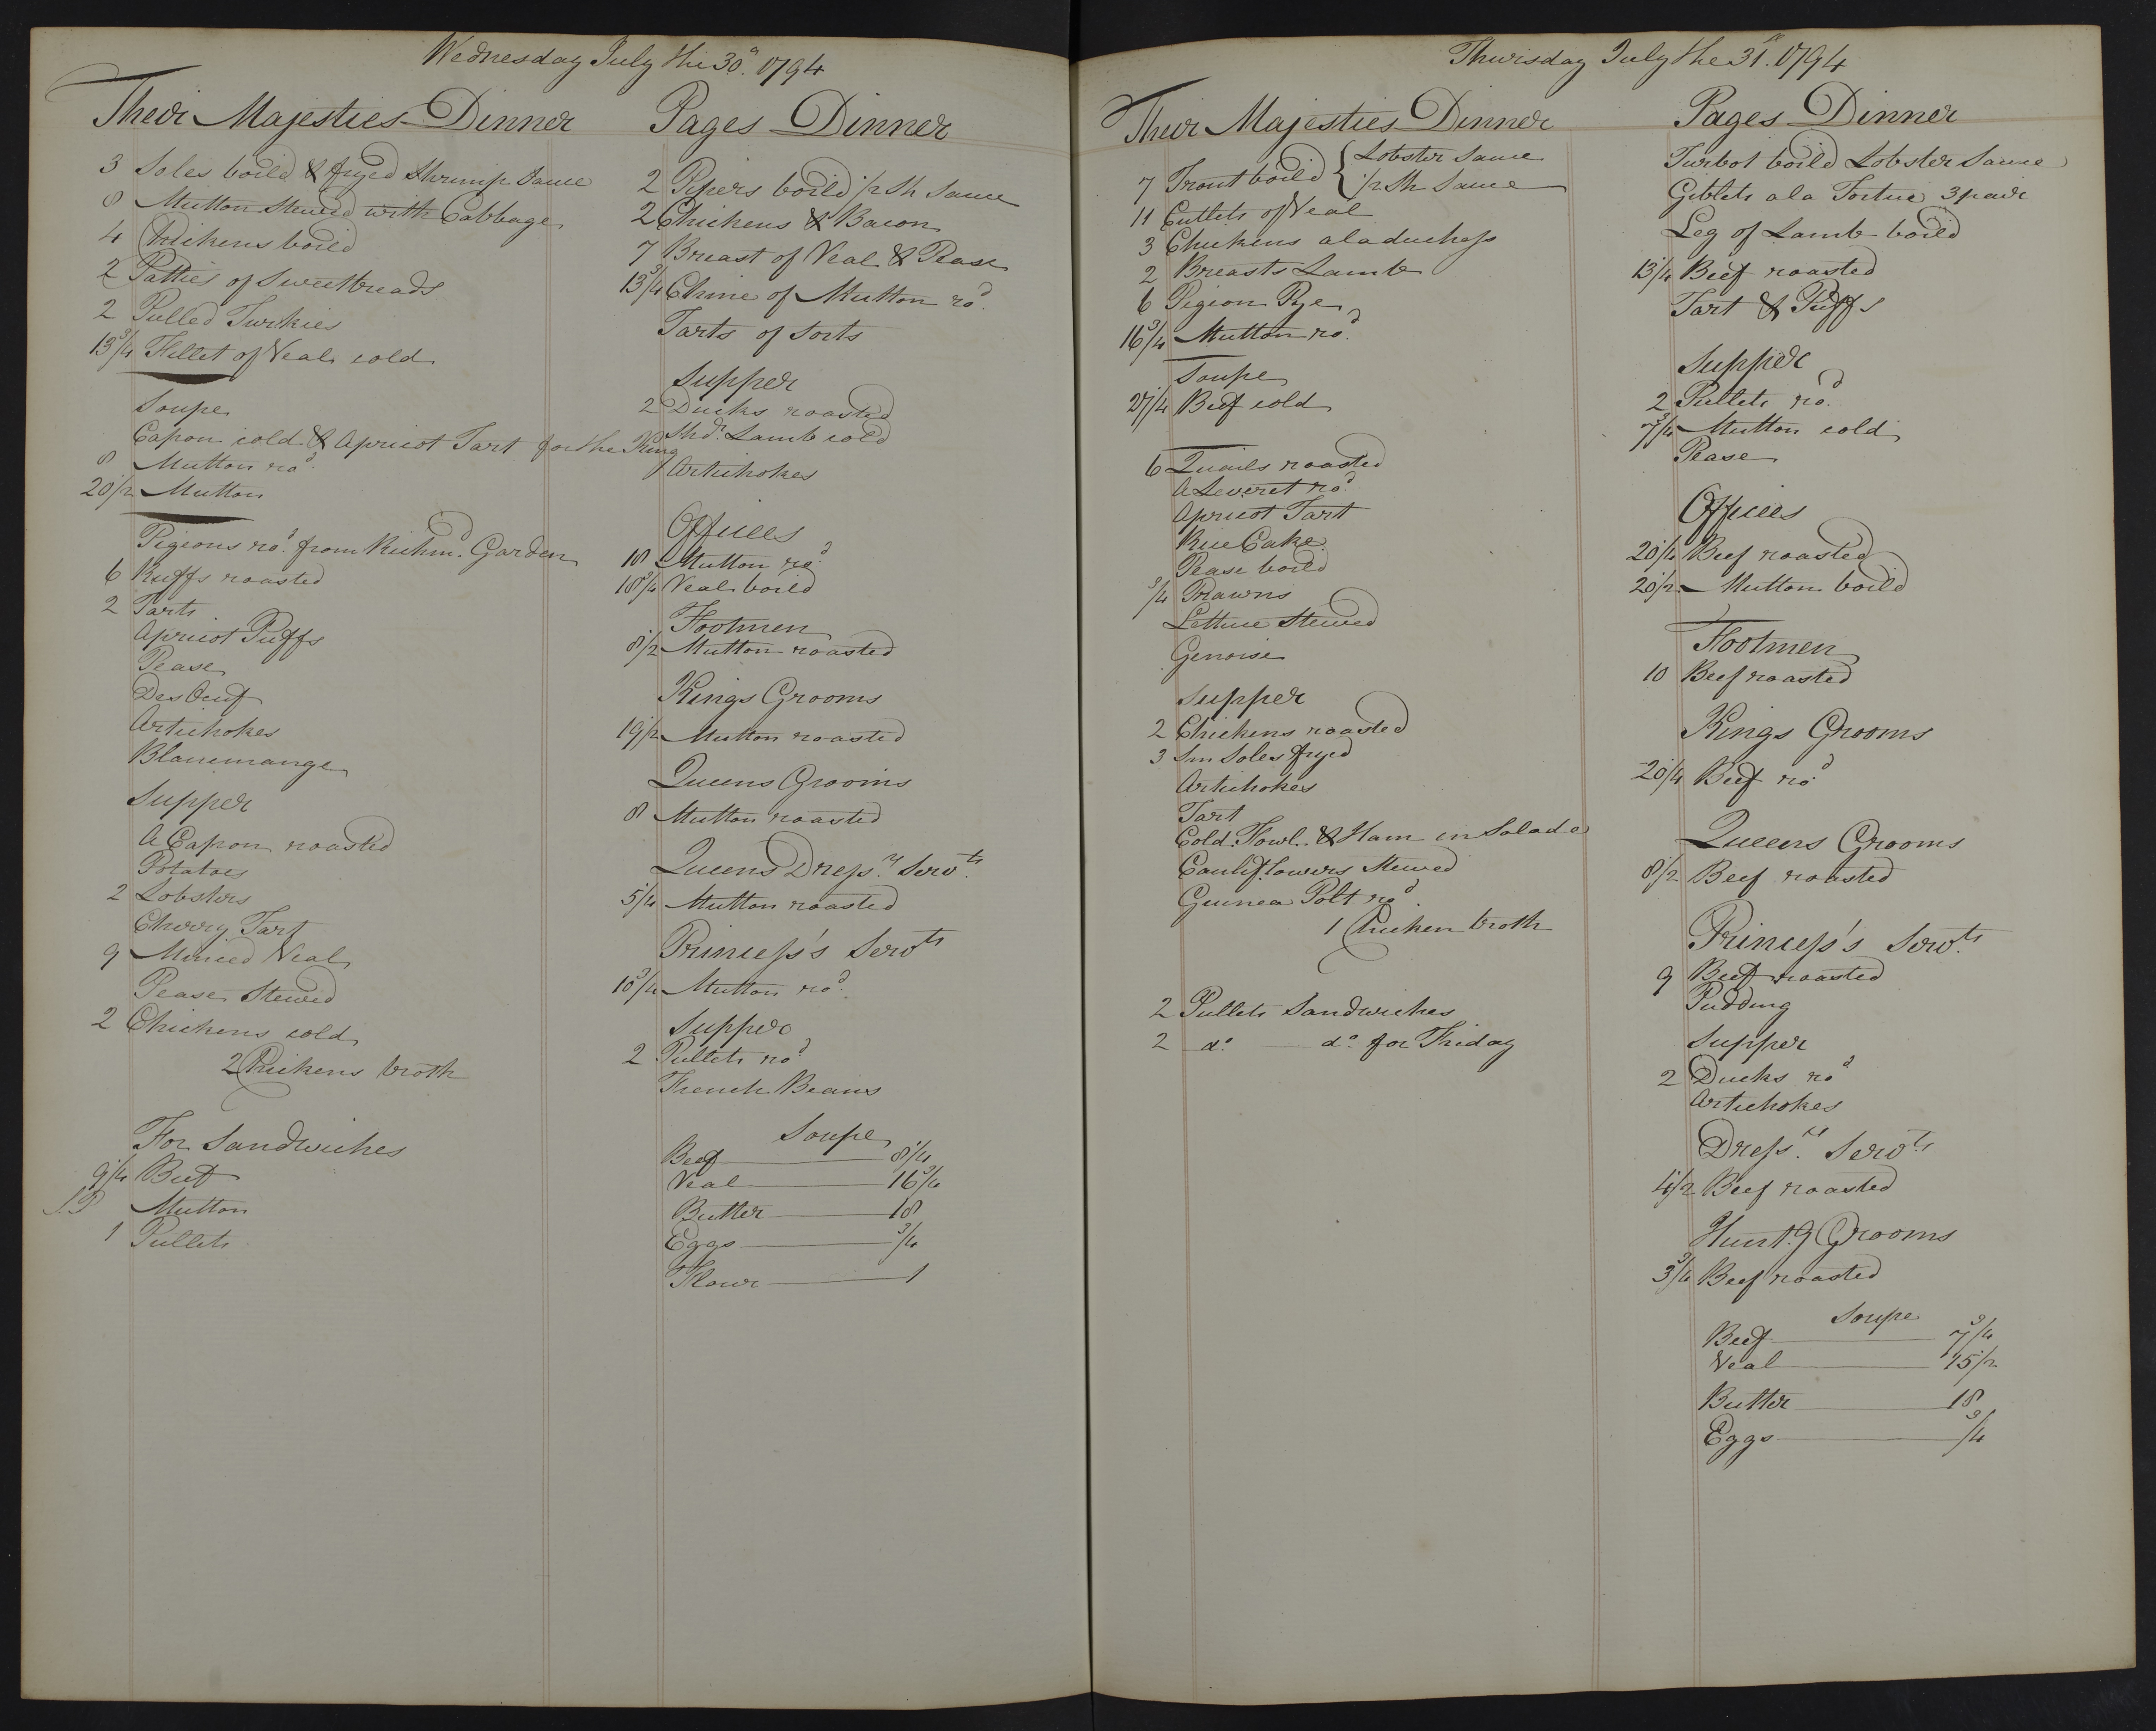 Wednesday July the 30th. 1794
Their Majesties Dinner
3 Soles boild & fryed Shrimp Sauce
8 Mutton Stewed with Cabbage
4 Chickens boild
2 Patties of Sweetbreads
2 Pulled Turkies
13 3/4 Fillet of Veal cold
Soupe
Capon cold & Apricot Tart for the King
8 Mutton rod.
20 1/2 Mutton
Pigeons rod. from Richmd. Garden
6 Ruffs roasted
2 Tarts
Apricot Puffs
Pease
Des Oeuf
Artichokes
Blancmange
Supper
A Capon roasted
Potatoes
2 Lobsters
Cherry Tart
9 Minced Veal
Pease Stewed
2 Chickens cold
2 Chickens broth
For Sandwiches
9 1/4 Beef
Mutton
1 Pullets
Pages Dinner
2 Pipers boild 1/2 Sh Sauce
2 Chickens & Bacon
7 Breast of Veal & Pease
13 3/4 Chine of Mutton rod.
Tarts of Sorts
Supper
2 Ducks roasted
Shdr. Lamb cold
Artichokes
Offices
18 Mutton rod.
18 3/4 Veal boild
Footmen
8 1/2 Mutton roasted
Kings Grooms
19 1/2 Mutton roasted
Queens Grooms
8 Mutton roasted
Queens Dressrs. Servts.
5 1/4 Mutton roasted
Princess's Servts
10 3/4 Mutton rod.
Supper
2 Pullets rod
French Beans
Soupe
Beef 8 1/4
Veal 16 3/4
Butter 18
Eggs 3/4
Flour 1
Thursday July the 31st. 1794
Their Majesties Dinner
7 Trout boild { Lobster Sauce
1/2 Sh Sauce
11 Cutlets of Veal
3 Chickens a la duchess
2 Breasts Lamb
6 Pigeon Pye
16 3/4 Mutton rod.
Soupe
27 1/4 Beef cold
6 Quails roasted
A Leveret rod.
Apricot Tart
Rice Cake
Pease boild
3/4 Prawns
Lettuce Stewed
Genoise
Supper
2 Chickens roasted
3 Sm Soles fryed
Artichokes
Tart
Cold Fowl & Ham in Salade
Cauliflowers Stewed
Guinea Polt rod.
1 Chicken broth
2 Pullets Sandwiches
2 do. do. for Friday
Pages Dinner
Turbot boild Lobster Sauce
Giblets a la Tortue 3 pair
Leg of Lamb boild
13 1/4 Beef roasted
Tart & Puffs
Supper
2 Pullets rod.
7 3/4 Mutton cold
Pease
Offices
20 1/4 Beef roasted
20 1/2 Mutton boild
Footmen
10 Beef roasted
Kings Grooms
20 1/4 Beef rod
Queens Grooms
8 1/2 Beef roasted
Princess's Servts.
9 Beef roasted
Pudding
Supper
2 Ducks rod
Artichokes
Dressrs. Servts
4 1/2 Beef roasted
Huntg Grooms
3 3/4 Beef roasted
Soupe
Beef 7 3/4
Veal 15 1/2
Butter 18
Eggs 3/4